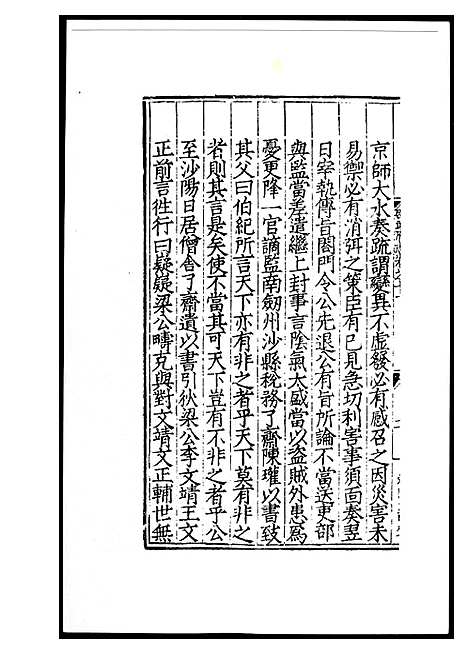 京師大水奏疏謂變異不虛發必有感召之因災害未
易禦必有消弭之策臣有己見急切利害事須面奏翌
日宰執傳旨閤門令公先退公有旨所論不當送吏部
與監當差遣繼上封事言陰氣太盛當以盜賊外患為
憂更降一官謫監南劒州沙縣稅務了齋陳瓘以書致
其父曰伯紀所言天下亦有非之者乎天下莫有非之
者則其言是矣使不當其可天下豈有不非之者乎公
至沙陽日居僧舍了齋遺以書引狄梁公李文靖王文
正前言徃行曰嶷嶷梁公疇克與對文靖文正輔世無